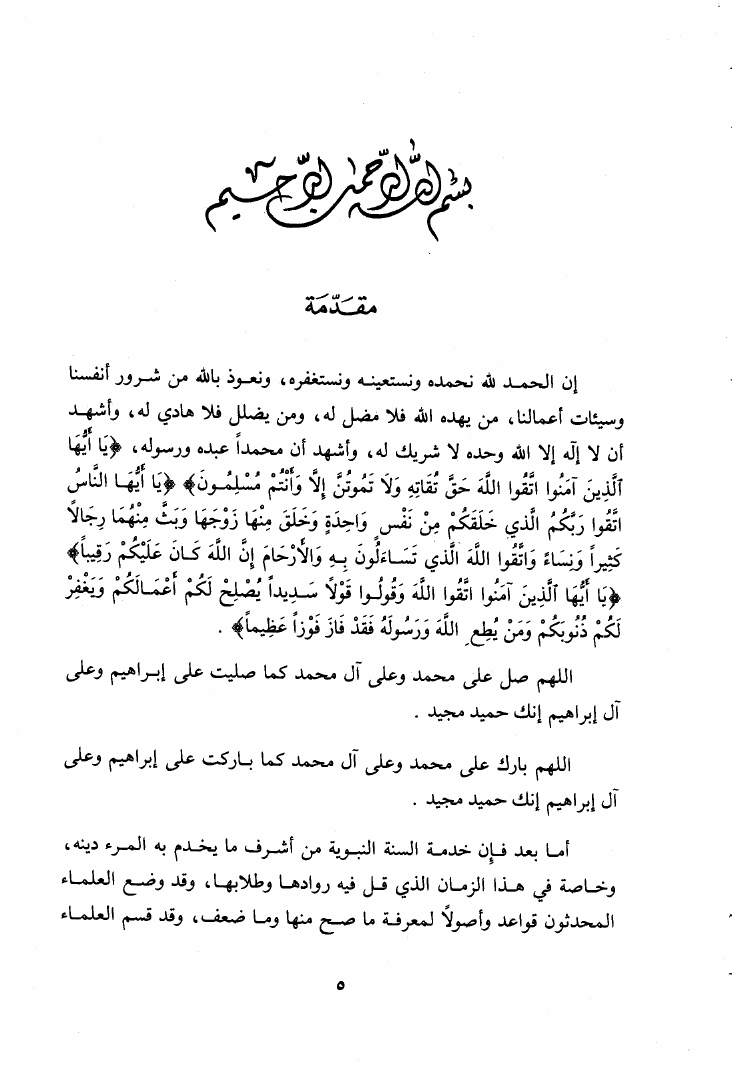 بسم الله الرحمن الرحيم
مقدمة
إن الحمد لله نحمده ونستعينه ونستغفره، ونعوذ بالله من شرور أنفسنا
وسيئات أعمالنا، من يهده الله فلا مضل له، ومن يضلل فلا هادي له، وأشهد
أن لا إله إلا الله وحده لا شريك له، وأشهد أن محمداً عبده ورسوله، ﴿يَا أَيُّهَا
الَّذِينَ آمَنُوا اتَّقُوا اللَّهَ حَقَّ تُقَاتِهِ وَلَا تَمُوتُنَّ إِلَّا وَأَنْتُمْ مُسْلِمُونَ﴾ ﴿يَا أَيُّهَا النَّاسُ
اتَّقُوا رَبَّكُمُ الَّذِي خَلَقَكُمْ مِنْ نَفْسٍ وَاحِدَةٍ وَخَلَقَ مِنْهَا زَوْجَهَا وَبَثَّ مِنْهُمَا رِجَالاً
كَثِيراً وَنِسَاءً وَاتَّقُوا اللَّهَ الَّذِي تَسَاءَلُونَ بِهِ وَالأَرْحَامَ إِنَّ اللَّهَ كَانَ عَلَيْكُمْ رَقِيباً﴾
﴿يَا أَيُّهَا الَّذِينَ آمَنُوا اتَّقُوا اللَّهَ وَقُولُوا قَوْلاً سَدِيداً يُصْلِحْ لَكُمْ أَعْمَالَكُمْ وَيَغْفِرْ
لَكُمْ ذُنُوبَكُمْ وَمَنْ يُطِعِ اللَّهَ وَرَسُولَهُ فَقَدْ فَازَ فَوْزاً عَظِيماً﴾ .
اللهم صل على محمد وعلى آل محمد كما صليت على إبراهيم وعلى
آل إبراهيم إنك حميد مجيد .
اللهم بارك على محمد وعلى آل محمد كما باركت على إبراهيم وعلى
آل إبراهيم إنك حميد مجيد .
أما بعد فإن خدمة السنة النبوية من أشرف ما يخدم به المرء دينه،
وخاصة في هذا الزمان الذي قل فيه روادها وطلابها، وقد وضع العلماء
المحدثون قواعد وأصولاً لمعرفة ما صح منها وما ضعف، وقد قسم العلماء
٥